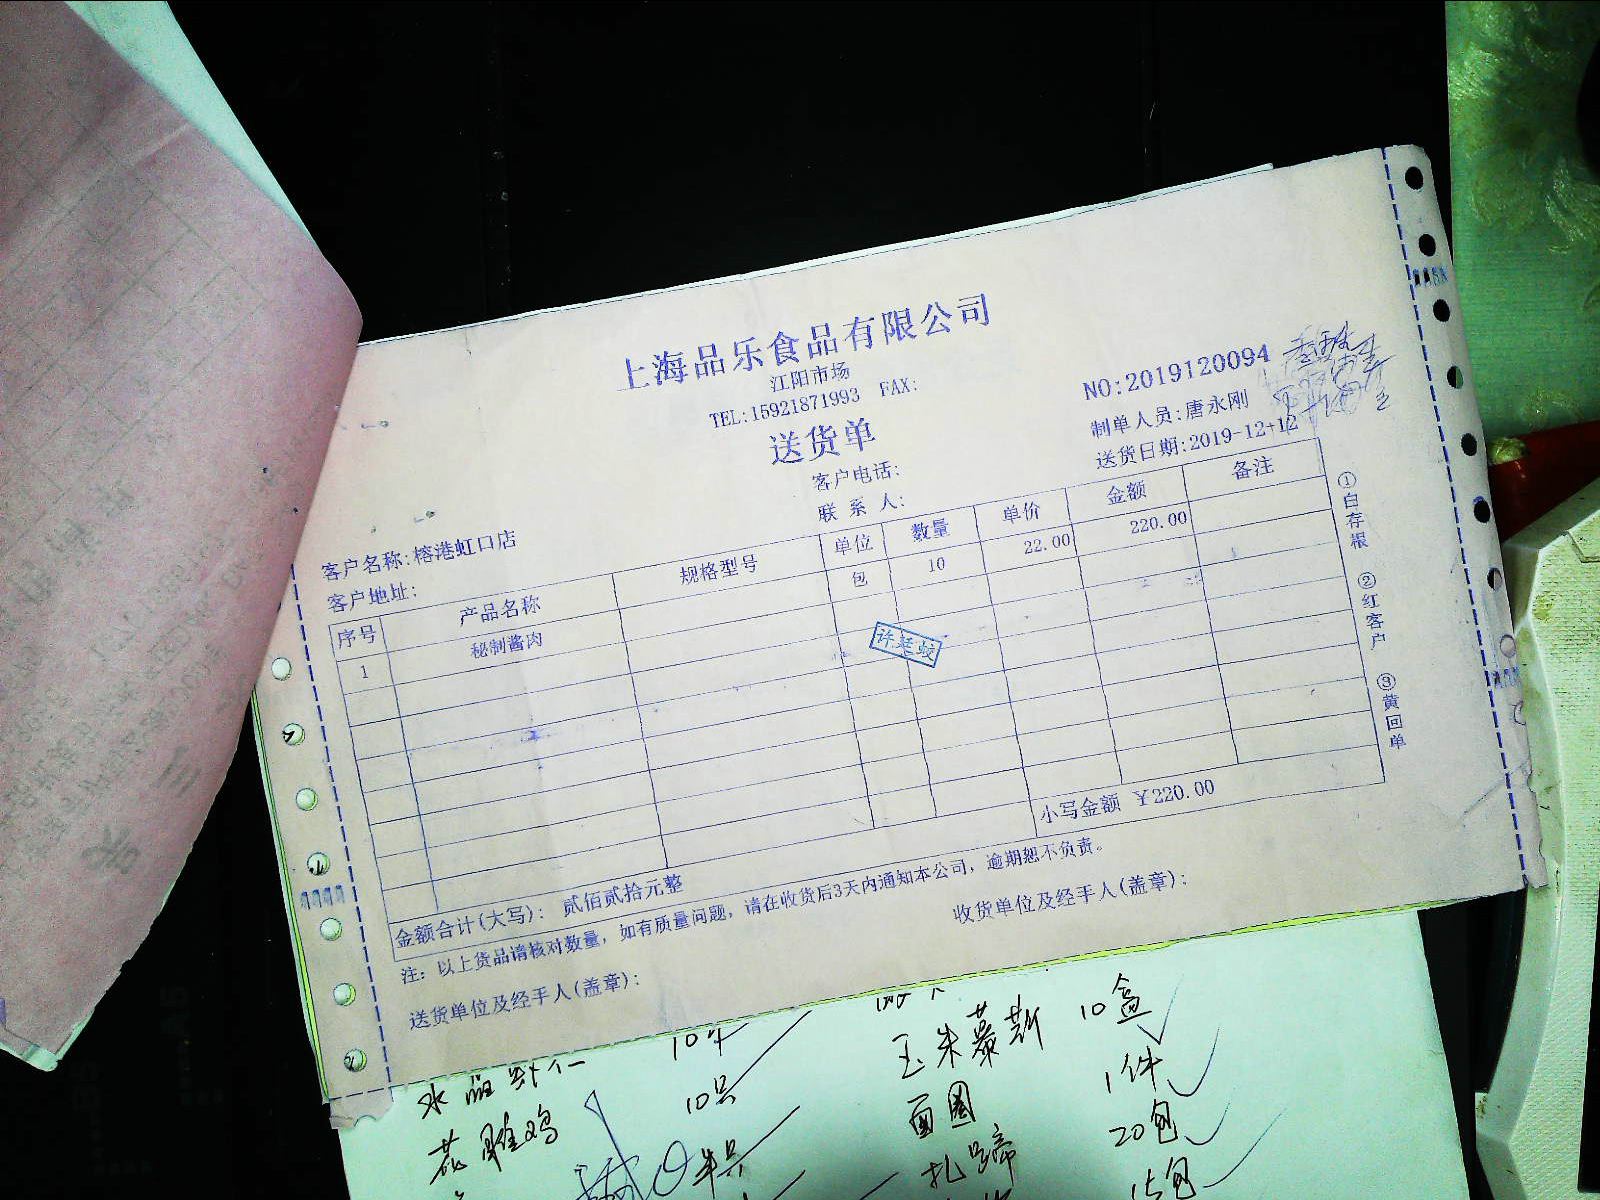 上海品乐食品有限公司
江阳市场
TEL:15921871993 FAX:
送货单
NO:2019120094
制单人员:唐永刚
送货日期:2019-12-12
客户电话:
联 系 人:
客户名称:榕港虹口店
客户地址:
序号 产品名称 规格型号 单位 数量 单价 金额 备注
1 秘制酱肉 包 10 22.00 220.00
小写金额 ￥220.00
金额合计(大写): 贰佰贰拾元整
注: 以上货品请核对数量, 如有质量问题, 请在收货后3天内通知本公司, 逾期恕不负责。
送货单位及经手人(盖章):
收货单位及经手人(盖章):
①白存根 ②红客户 ③黄回单
10只
半只
10盒
面团 1件
扎蹄 20包
15包